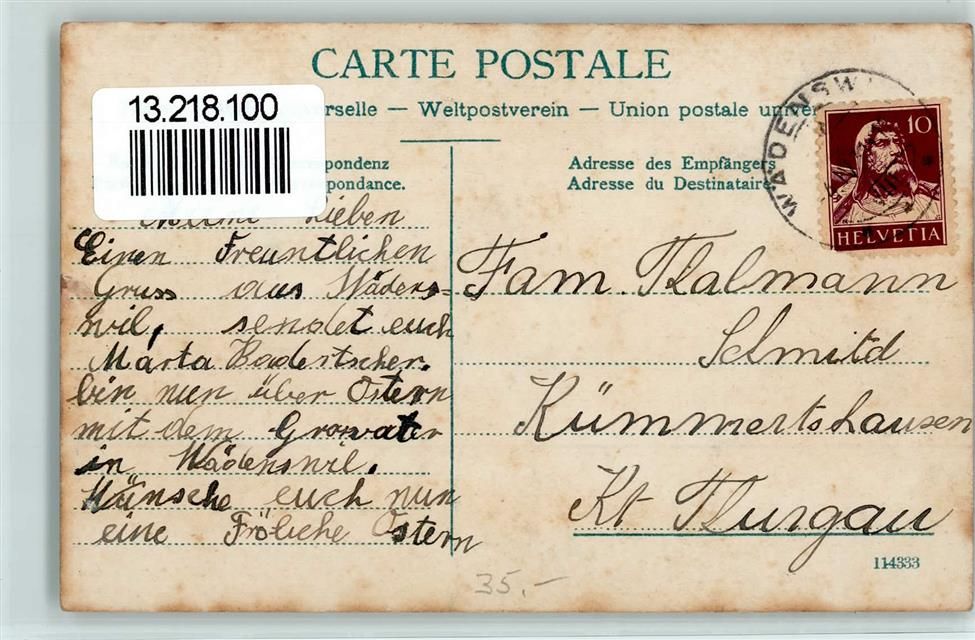 CARTE POSTALE
13.218.100
erselle — Weltpostverein — Union postale univer
respondenz
spondance.
Adresse des Empfängers
Adresse du Destinataire.
WÄDENSW
10
HELVETIA
Meine Lieben
Einen Freuntlichen
Gruss aus Wädens-
wil, sendet euch
Marta Badertscher.
bin nun über Ostern
mit dem Grosvater
in Wädenswil.
Wünsche euch nun
eine Fröliche Ostern
Fam. Thalmann
Schmitd
Kümmertshausen
Kt Thurgau
114333
35.-